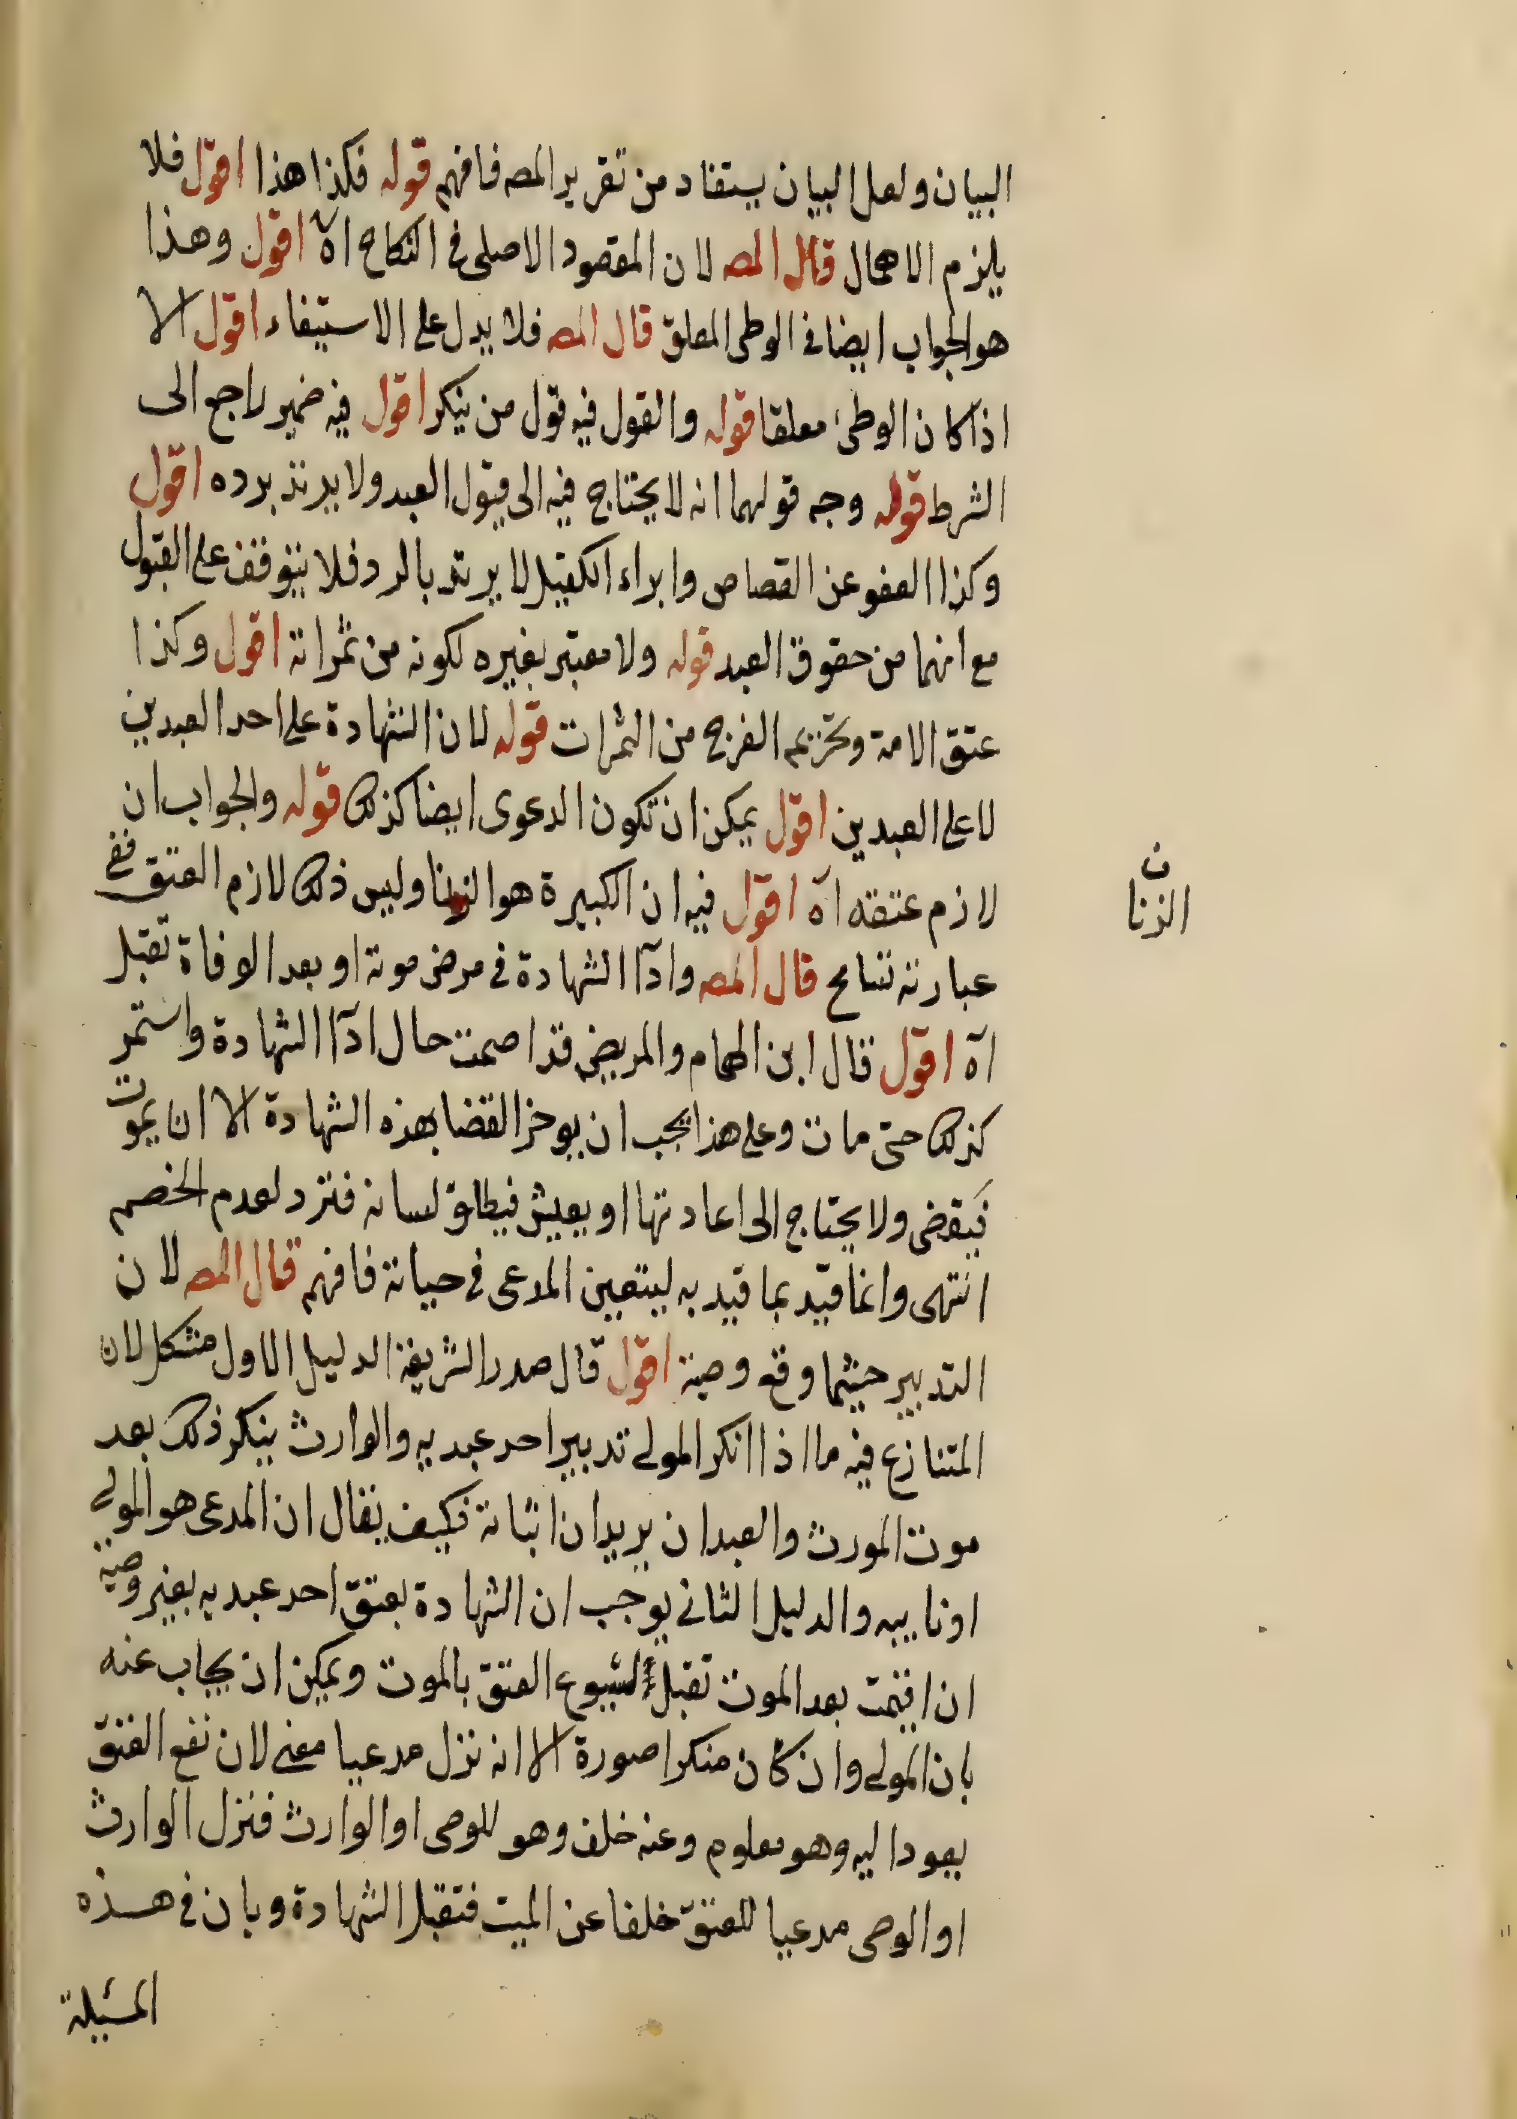 البيان ولعل البيان يستفاد من تقرير المصه فافهم قوله فكذا هذا اقول فلا
يلزم الاهمال قال المصه لان المقصود الاصلى فى النكاح اه اقول وهذا
هو الجواب ايضا فى الوطى المعلق قال المصه فلا يدل على الاستيفاء اقول الا
اذا كان الوطئ معلقا قوله والقول فيه قول من ينكر اقول فيه ضمير راجع الى
الشرط قوله وجه قولهما انه لا يحتاج فيه الى قبول العبد ولا يرتد برده اقول
وكذا العفو عن القصاص وابراء الكفيل لا يرتد بالرد فلا يتوقف على القبول
مع انهما من حقوق العبد قوله ولا معتبر بغيره لكونه من ثمراته اقول وكذا
عتق الامة وتحريم الفرج من الثمرات قوله لان الشهادة على احد العبدين
لا على العبدين اقول يمكن ان تكون الدعوى ايضا كذلك قوله والجواب ان
لازم عتقه اه اقول فيه ان الكبيرة هو الزنا وليس ذلك لازم العتق ففى
ن
الزنا
عبارته تسامح قال المصه واذا الشهادة فى مرض موته او بعد الوفاة تقبل
اه اقول قال ابن الهمام والمريض قد اصمت حال ادآ الشهادة واستمر
كذلك حتى مات وعلى هذا يجب ان يوخر القضا بهذه الشهادة الا ان يموت
فيقضى ولا يحتاج الى اعادتها او يعيش فيطلق لسانه فترد لعدم الخصم
انتهى وانما قيد بما قيد به ليتعين المدعى فى حياته فافهم قال المصه لان
التدبير حيثما وقع وصية اقول قال صدر الشريعة الدليل الاول مشكل لان
المتنازع فيه ما اذا انكر المولى تدبير احد عبديه والوارث ينكر ذلك بعد
موت المورث والعبدان يريدان اثباته فكيف يقال ان المدعى هو المولى
او نايبه والدليل الثانى يوجب ان الشهادة بعتق احد عبديه بغير وصية
ان اقيمت بعد الموت تقبل لشيوع العتق بالموت ويمكن ان يجاب عنه
بان المولى وان كان منكرا صورة الا انه نزل مدعيا معنى لان نفع العتق
يعود اليه وهو معلوم وعنه خلف وهو الوصى او الوارث فنزل الوارث
او الوصى مدعيا للعتق خلفا عن الميت فتقبل الشهادة وبان فى هذه
المسئيلة